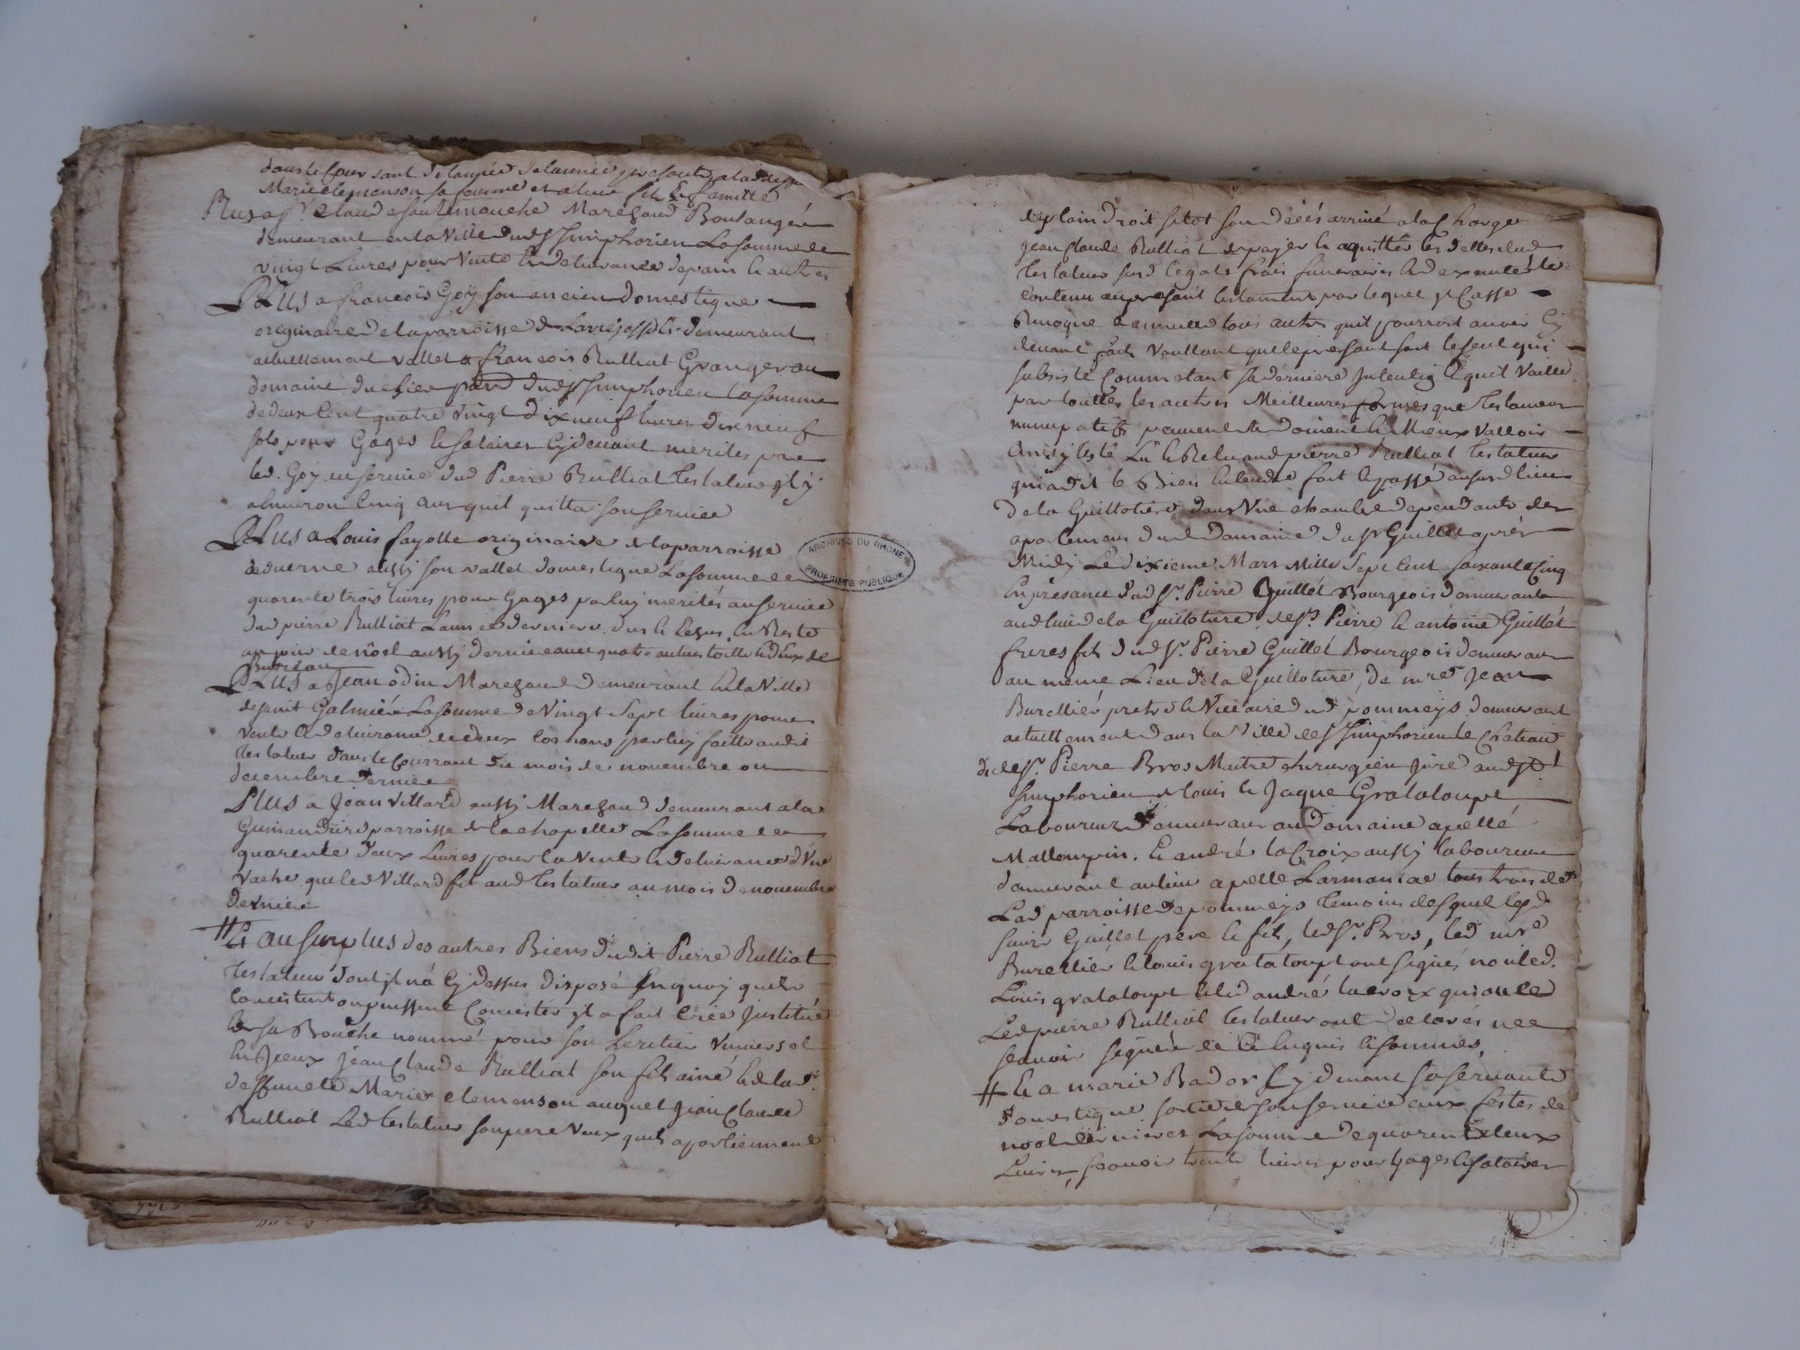 dans le courant de l'année
Marie clemenson sa femme et a leur fils & famille
Plus a Sr. claude fontemouche Marchand Boulangér
demeurant en la Ville dud St Simphorien La somme de
vingt Livres pour Vente & delivrance de pain & autres
PLUS a francois Goÿ son ancien domestique
originaire de la parroisse de demeurant
actuellement vallet a francois Rulliat Granger au
domaine du dud St Simphorien la somme
de deux Cent quatre vingt dix neuf livres dix neuf
sols pour Gages & salaires Cy devant merites par
led. Goy au service dud Pierre Rulliat testateur yl y
a environ Cinq ans quil quitta son service
PLus a Louis fayolle originaire de la parroisse
de duerne aussy son vallet domestique La somme de
quarente trois livres pour Gages par luy merités au service
dud pierre Rulliat L'année derniere
au jour de nöel aussy derniée avec quatre aulnes toille
PLUS a Jean odin Marchand demeurant en la Ville
de saint Galmiée La somme de Vingt Sept livres pour
vente & delivrance de deux cochons par luy faitte audit
testateur dans le Courrant du mois de novembre ou
decembre dernier
PLUS a Jean Villard aussy Marchand demeurant a la
parroisse de la chapelle La somme de
quarente deux Livres pour la Vente & delivrance d'Une
vache que led Villard fit aud testateur au mois de novembre
dernier
# Et au surplus des autres Biens dudit Pierre Rulliat
testateur dont jl n'a Cy dessus disposé En quoy quils
Consistent ou puissent Consister yl a fait Créé jnstitué
& de sa Bouche nommé pour son heritier Universel
Jean Claude Rulliat son fils ainé & de lad.
deffuncte Marie clemenson auquel Jean Claude
Rulliat Led testateur son pere Veux quils apartiennent
de plain droit sitot son décés arrivé a la Charge
Jean Claude Rulliat de payer & aquitter les dettes dud
testateur sesd legats frais funeraires & d'executer le
contenu au present testament par lequel yl Casse
Revoque & annulle tous autres quil pourroit avoir Cy
devant faits Voullant que le present soit le seul qui
subsiste Comme etant sa derniere jntention & quil Vaille
par touttes les autres Meilleures formes que testament
nuncupatif peuvent & doivent le Mieux Valloir
Ainsy testé Lu & Relu aud pierre Rulliat testateur
qui a dit le Bien Entendre fait & passé ausurd lieu
de la Guillotiere dans Une chambre dependante des
apartemens dud Domaine du Sr Guillet aprés
Midy Le dixieme Mars Mille Sept Cent soixante Cinq
En presance dud Sr. Pierre Guillét Bourgeois demeurant
aud lieu de la Guillotiere, de Sr. Pierre & antoine Guillét
freres fils dud Sr. Pierre Guillét Bourgeois demeurans
au même Lieu de la Guillotiere, de mre Jean
Burellier pretre & Vicaire dud pommeys demeurant
actuellement dans la Ville de St Simphorien le Chateau
de Sr. Pierre Bros Maitre chirurgien juré aud St
Simphorien de Louis & Jaque Grataloupt
Laboureurs demeurans au Domaine apellé
Mallompin. & andré la Croix aussy laboureur
demeurant au lieu apellé Larmaniac tous trois de
Lad parroisse de pommeys temoins desquels led
Guillet pere & fils, led Sr. Bros, led mre
Burellier & Louis grataloupt ont signés non led.
Louis grataloupt & led andré lacroix qui avec
Led pierre Rulliat testateur ont declarés ne
scavoir signér de Ce Enquis & sommés,
# Et a marie Bador Cy devant sa servante
domestique sortie de son service aux festes de
noel dernieres La somme de quarente deux
Livres, scavoir trente livres pour Gages & salaires
ARCHIVES DU RHÔNE
PROPRIÉTÉ PUBLIQUE